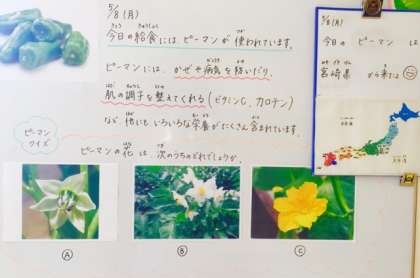 5/8(月)
今日の給食には、ピーマンが使われています。
ピーマンには、かぜや病気を防いだり、
肌の調子を整えてくれる(ビタミンC、カロテン)
など他にもいろいろな栄養がたくさん含まれています。
ピーマン
クイズ
ピーマンの花は、次のうちのどれでしょうか。
Ⓐ
Ⓑ
Ⓒ
5/8(月)
今日の ピーマン は
宮崎県 から来たよ